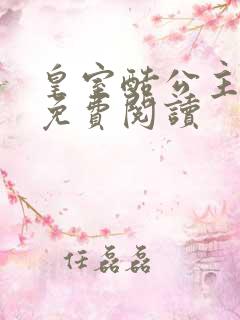 皇室酷公主
免費閱讀
任磊磊